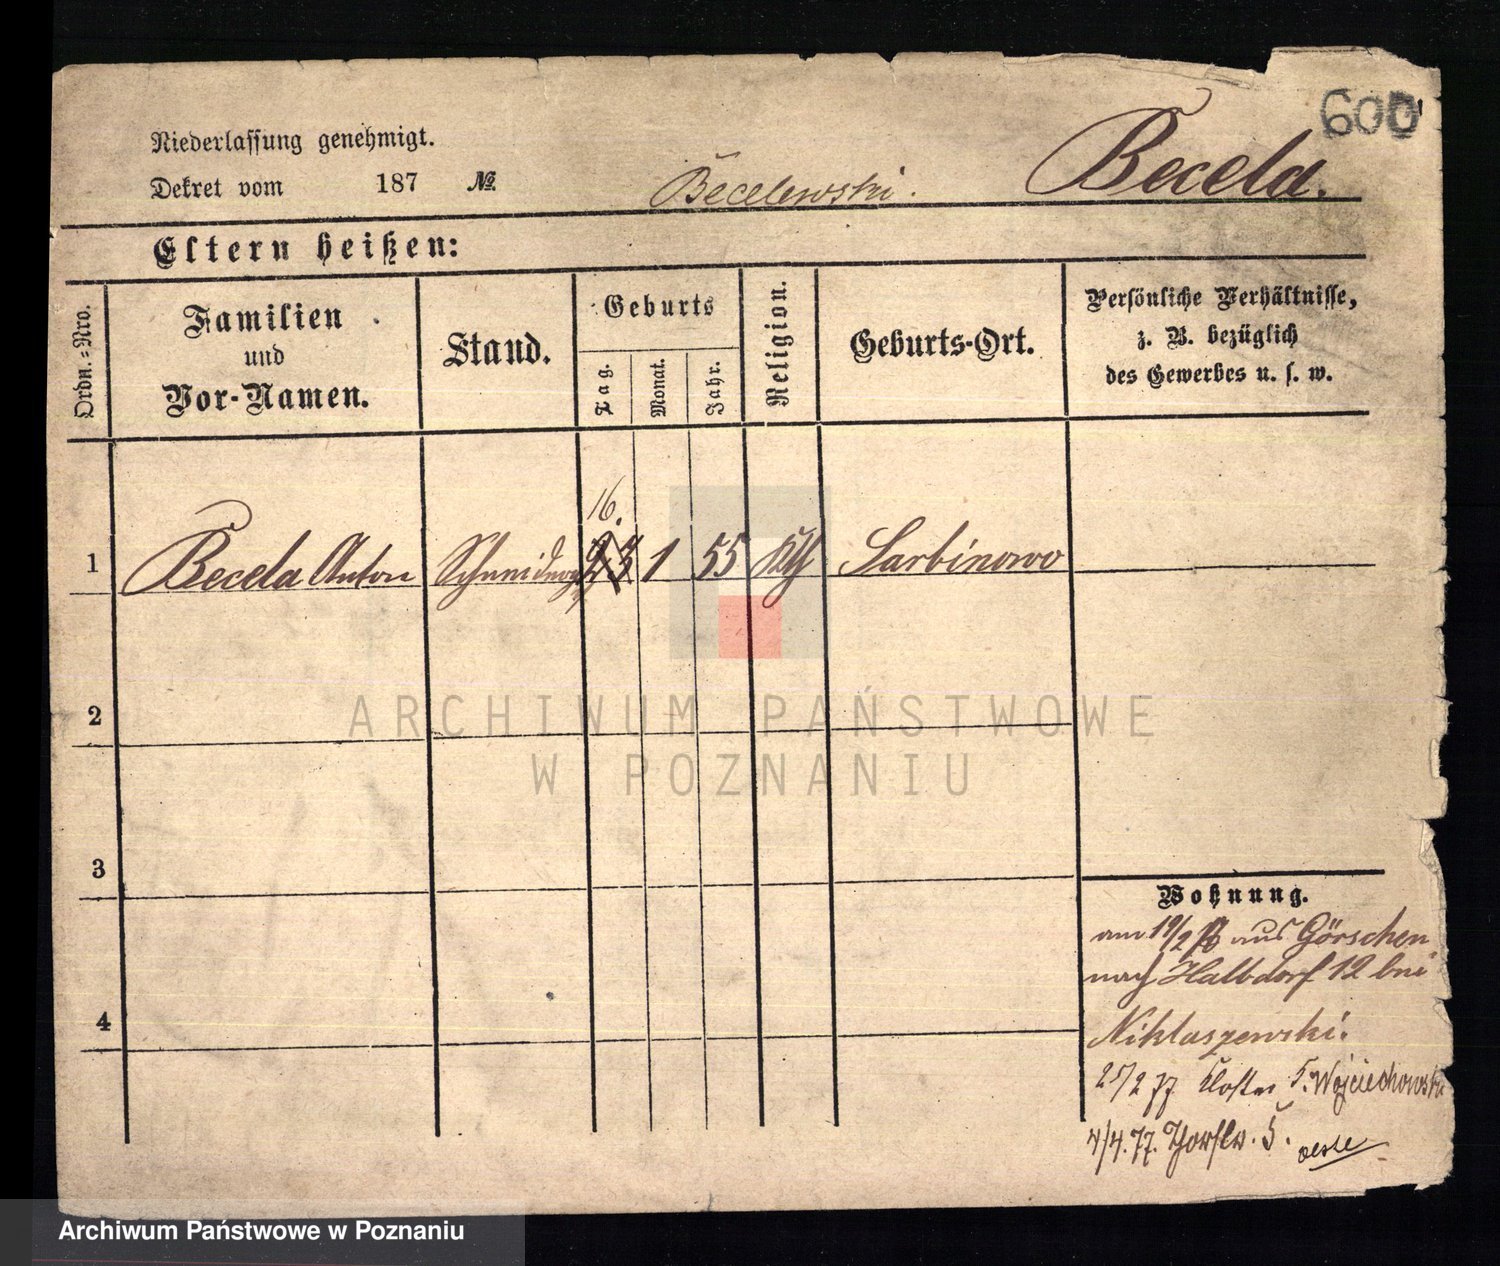 600
Niederlassung genehmigt.
Dekret vom 187 №
Becelewski.
Becela.
Eltern heißen:
Ordn.=Nro.
Familien
und
Vor-Namen.
Stand.
Geburts
Tag.
Monat.
Jahr.
Religion.
Geburts-Ort.
Persönliche Verhältnisse,
z. B. bezüglich
des Gewerbes u. s. w.
16.
1 Becela Anton 1 55 Kth Sarbinowo
2
3
4
Wohnung.
am 19/2 aus Görschen
nach Halbdorf 12 bei
Niklaszewski.
25/2 77 Kloster 5. Wojciechowski
4/4. 77. Thorstr. 5.
ARCHIWUM PAŃSTWOWE
W POZNANIU
Archiwum Państwowe w Poznaniu